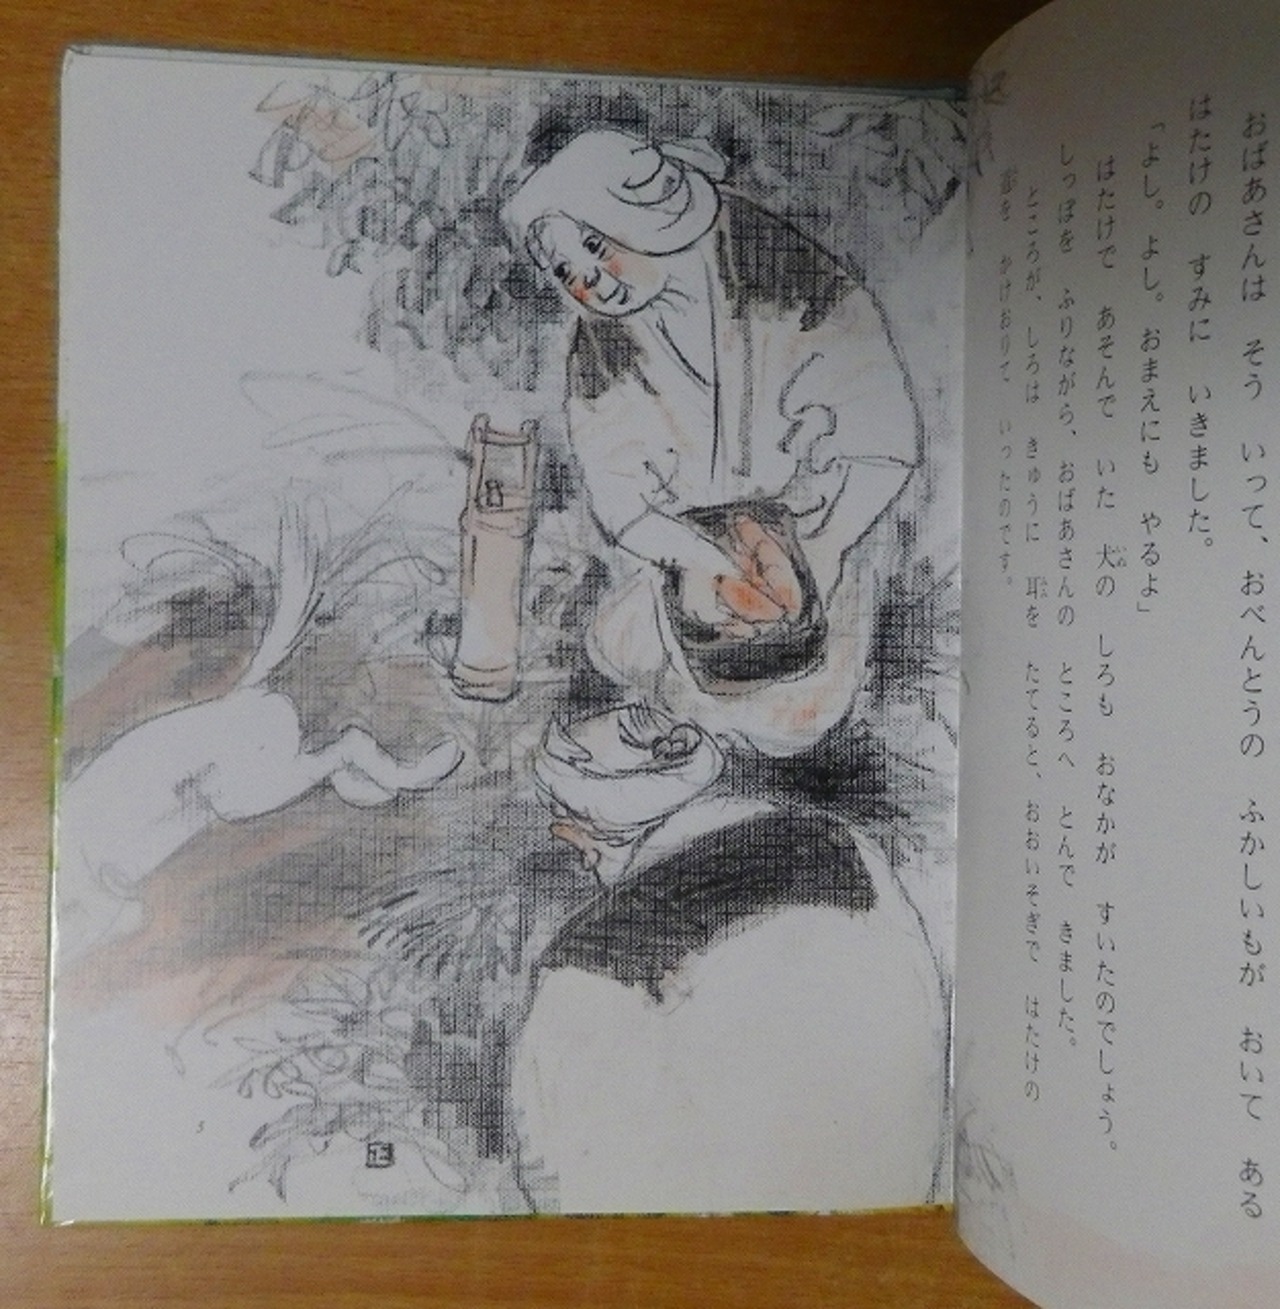 おばあさんは　そう　いって、　おべんとうの　ふかしいもが　おいて　ある
はたけの　すみに　いきました。
「よし。よし。おまえにも　やるよ」
はたけで　あそんで　いた　犬の　しろも　おなかが　すいたのでしょう。
しっぽを　ふりながら、　おばあさんの　ところへ　とんで　きました。
ところが、　しろは　きゅうに　耳を　たてると、　おおいそぎで　はたけの
を　かけおりて　いったのです。
5